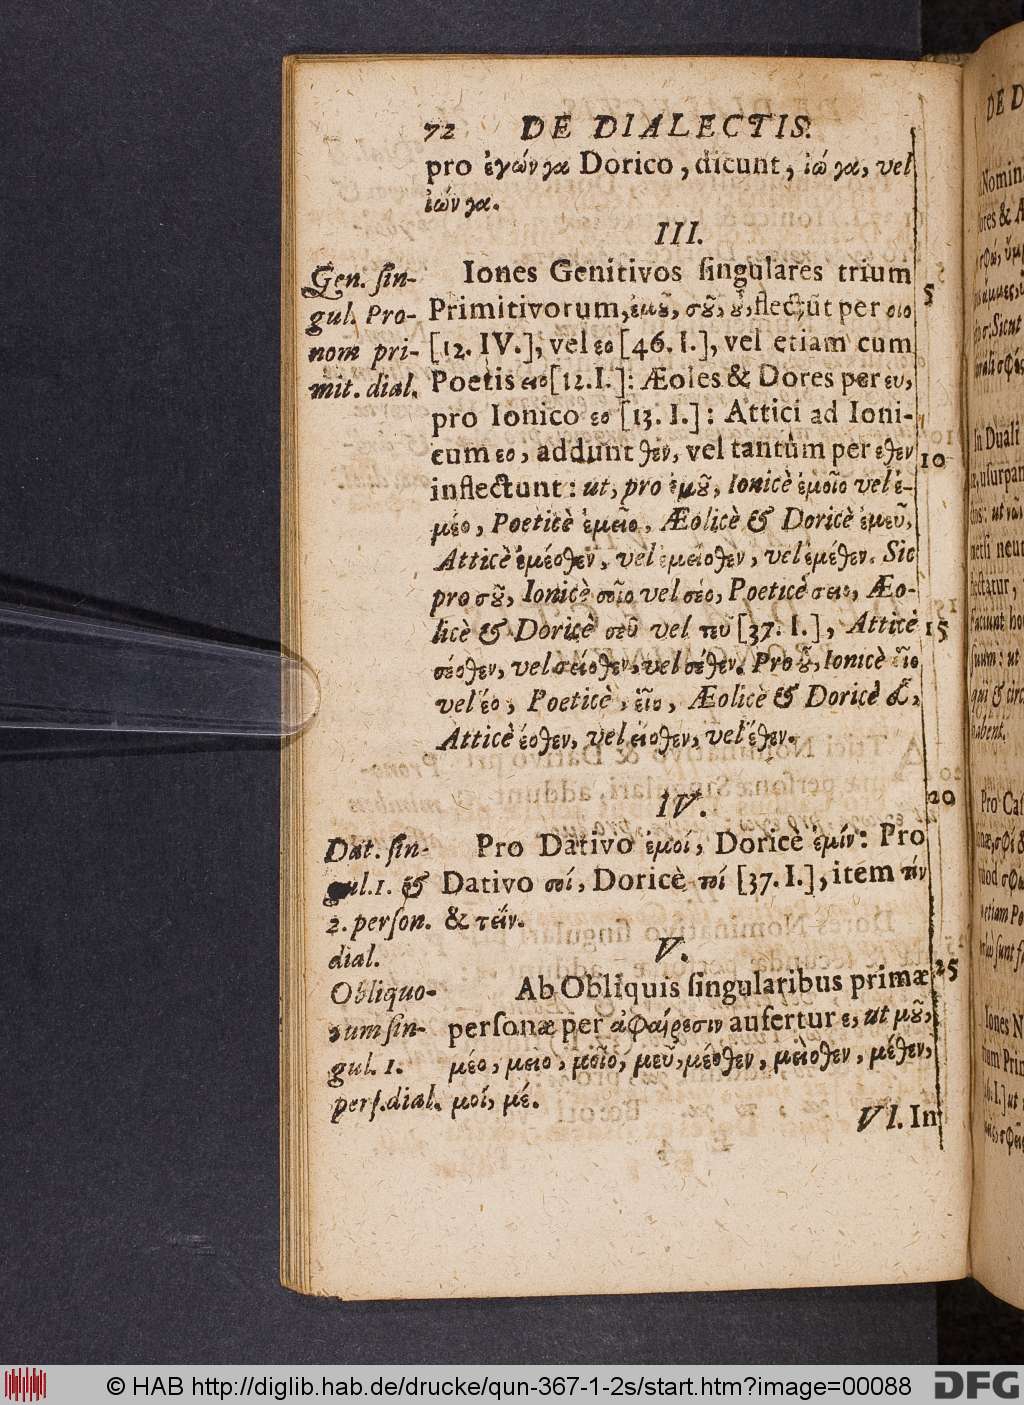 72 DE DIALECTIS.
pro ἐγών γα Dorico, dicunt, ἰώ γα, vel
ἰών γα.
III.
Gen. ſin-
gul. Pro-
nom pri-
mit. dial.
Iones Genitivos ſingulares trium
Primitivorum, ἐμȣ͂, σȣ͂, ȣ͗͂, flectũt per οιο
[12. IV.], vel εο [46. I.], vel etiam cum
Poetis ειο [12. I.]: Æoles & Dores per ευ,
pro Ionico εο [13. I.]: Attici ad Ioni-
cum εο, addunt θεν, vel tantùm per εθεν
inflectunt: ut, pro ἐμȣ͂, Ionicè ἐμοῖο vel ἐ-
μέο, Poeticè ἐμεῖο, Æolicè & Doricè ἐμεῦ,
Atticè ἐμέοθεν, vel ἐμείοθεν, vel ἐμέθεν. Sic
pro σȣ͂, Ionicè σοῖο vel σέο, Poeticè σειο, Æo-
licè & Doricè σεῦ vel τεῦ [37. I.], Atticè
σέοθεν, vel σείοθεν, vel σέθεν. Pro ȣ͗͂, Ionicè εἷο
vel ἕο, Poeticè, εἷο, Æolicè & Doricè εὗ,
Atticè ἕοθεν, vel εἵοθεν, vel ἕθεν.
5
10
15
20
IV.
Dat. ſin-
gul. 1. &
2. perſon.
dial.
Pro Dativo ἐμοί, Doricè ἐμίν: Pro
Dativo σοί, Doricè τοί [37. I.], item τίν
& τεΐν.
V.
Obliquo-
rum ſin-
gul. 1.
perſ. dial.
Ab Obliquis ſingularibus primæ
perſonæ per ἀφαίρεσιν aufertur ε, ut μȣ͂,
μέο, μειο, μοῖο, μεῦ, μέοθεν, μείοθεν, μέθεν,
μοί, μέ.
25
VI. In
DE D
© HAB http://diglib.hab.de/drucke/qun-367-1-2s/start.htm?image=00088
DFG